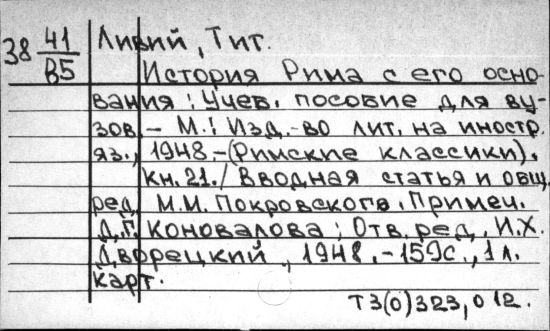 38 41/В5 Ливий, Тит.
История Рима с его осно-
вания: Учеб. пособие для ву-
зов. - М.: Изд-во лит. на иностр.
яз., 1948. - (Римские классики).
кн. 21. / Вводная статья и общ.
ред. М.М. Покровского. Примеч.
Д.П. Коновалова; Отв. ред. И.Х.
Дворецкий, 1948. - 159с., 1 л.
карт.
Т3(0)323,012.